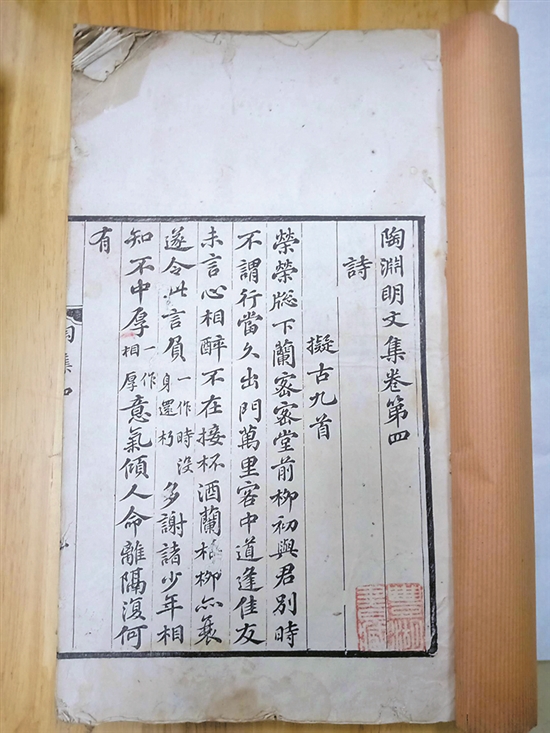 陶淵明文集卷第四
詩
擬古九首
榮榮牎下蘭密密堂前柳初與君別時
不謂行當久出門萬里客中道逢佳友
未言心相醉不在接杯酒蘭枯柳亦衰
遂令此言負一作時没身還朽多謝諸少年相
知不中厚一作相厚意氣傾人命離隔復何
有
豐湖
書藏